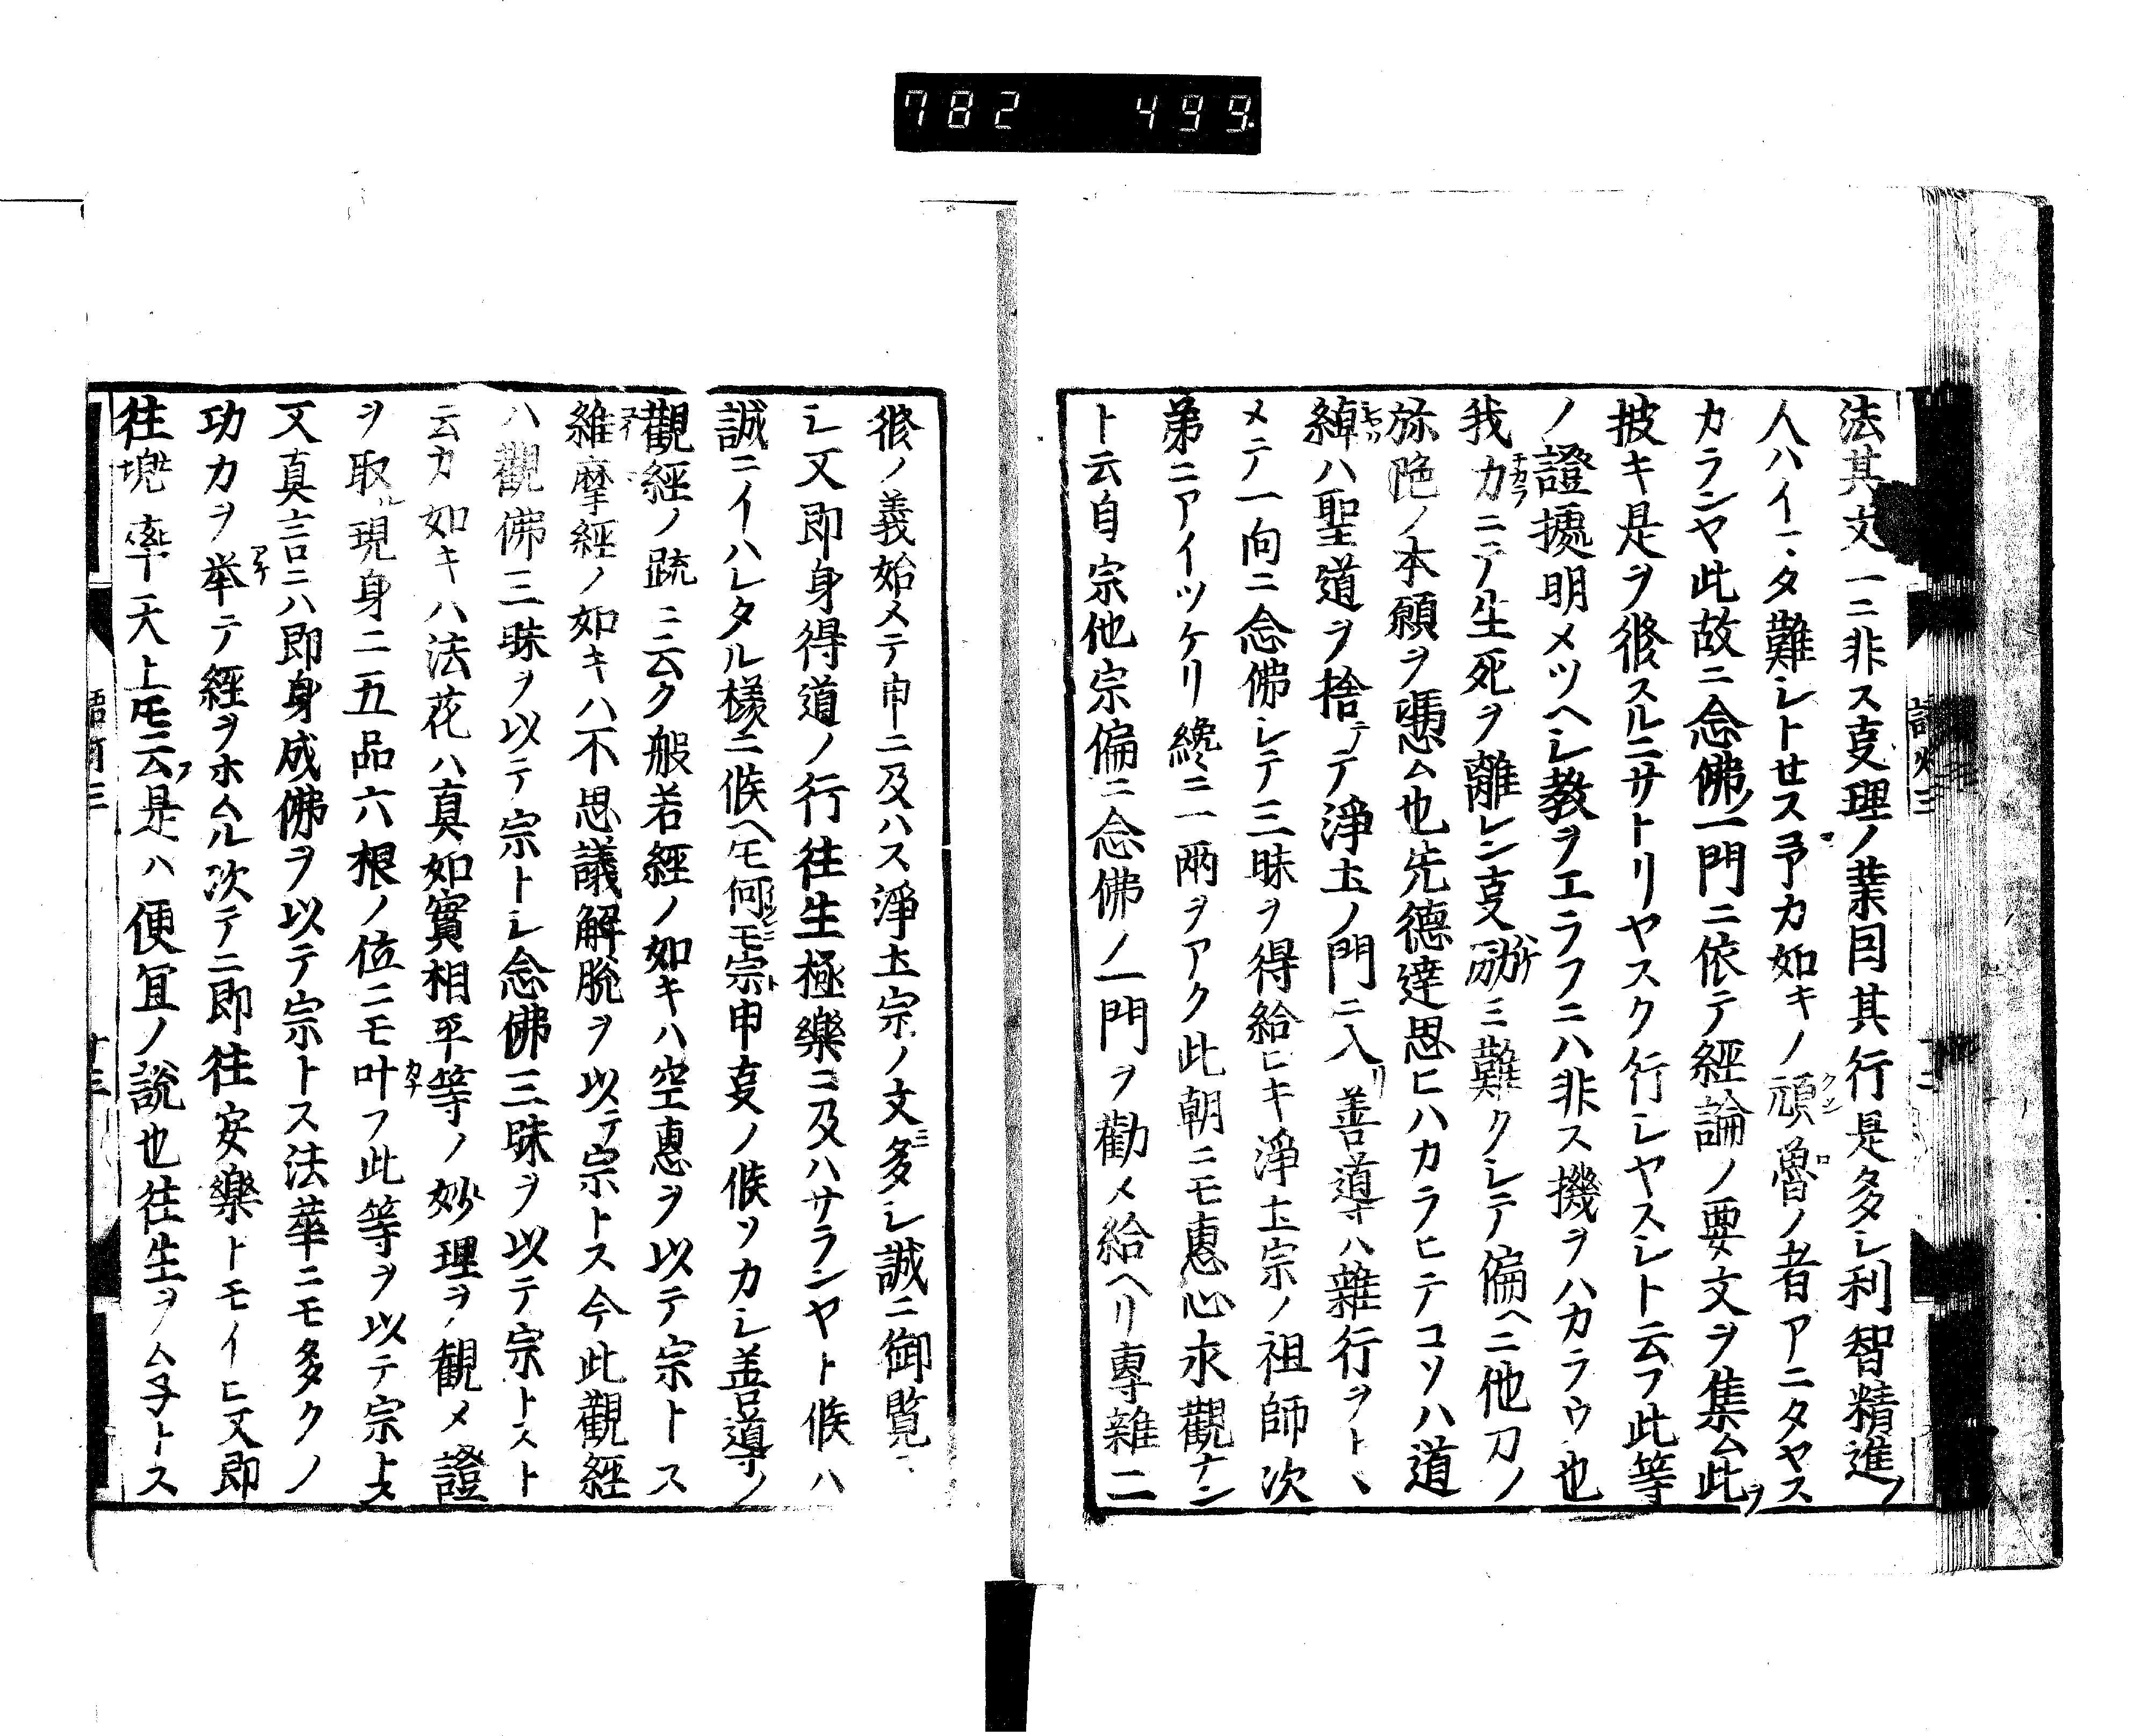 782 499
法其文一ニ非ス叓理ノ業因其行是多シ利智精進ノ
人ハイマタ難シトセス予カ如キノ頑魯ノ者アニタヤス
カランヤ此故ニ念佛ノ一門ニ依テ經論ノ要文ヲ集ム此ヲ
披キ是ヲ修スルニサトリヤスク行シヤスシト云フ此等
ノ證據明メツヘシ教ヲエラフニハ非ス機ヲハカラウ也
我カチカラニテ生死ヲ離レン叓ハケミ難クシテ偏ヘニ他力ノ
弥陁ノ本願ヲ憑ム也先德達思ヒハカラヒテコソハ道
綽ハ聖道ヲ捨テテ淨土ノ門ニ入リ善導ハ雜行ヲトヽ
メテ一向ニ念佛シテ三昧ヲ得給ヒキ淨土宗ノ祖師次
第ニアイツケリ纔ニ一兩ヲアク此朝ニモ惠心永觀ナン
ト云自宗他宗偏ニ念佛ノ一門ヲ勸メ給ヘリ專雜二
修ノ義始メテ申ニ及ハス淨土宗ノ文多シ誠ニ御覧
シ又即身得道ノ行往生極樂ニ及ハサランヤト候ハ
誠ニイハレタル樣ニ候ヘ𪜈何ニモ宗ト申叓ノ候ソカシ善導ノ
觀經ノ疏ニ云ク般若經ノ如キハ空惠ヲ以テ宗トス
維摩經ノ如キハ不思議解脱ヲ以テ宗トス今此觀經
ハ觀佛三昧ヲ以テ宗トシ念佛三昧ヲ以テ宗トスト
云カ如キハ法花ハ真如實相平等ノ妙理ヲ観メ證
ヲ取ル現身ニ五品六根ノ位ニモ叶フ此等ヲ以テ宗トス
又真言ニハ即身成佛ヲ以テ宗トス法華ニモ多クノ
功力ヲ举テ經ヲホムル次テニ即往安樂トモイヒ又即
往兜率天上𪜈云フ是ハ便宜ノ說也往生ヲムネトス